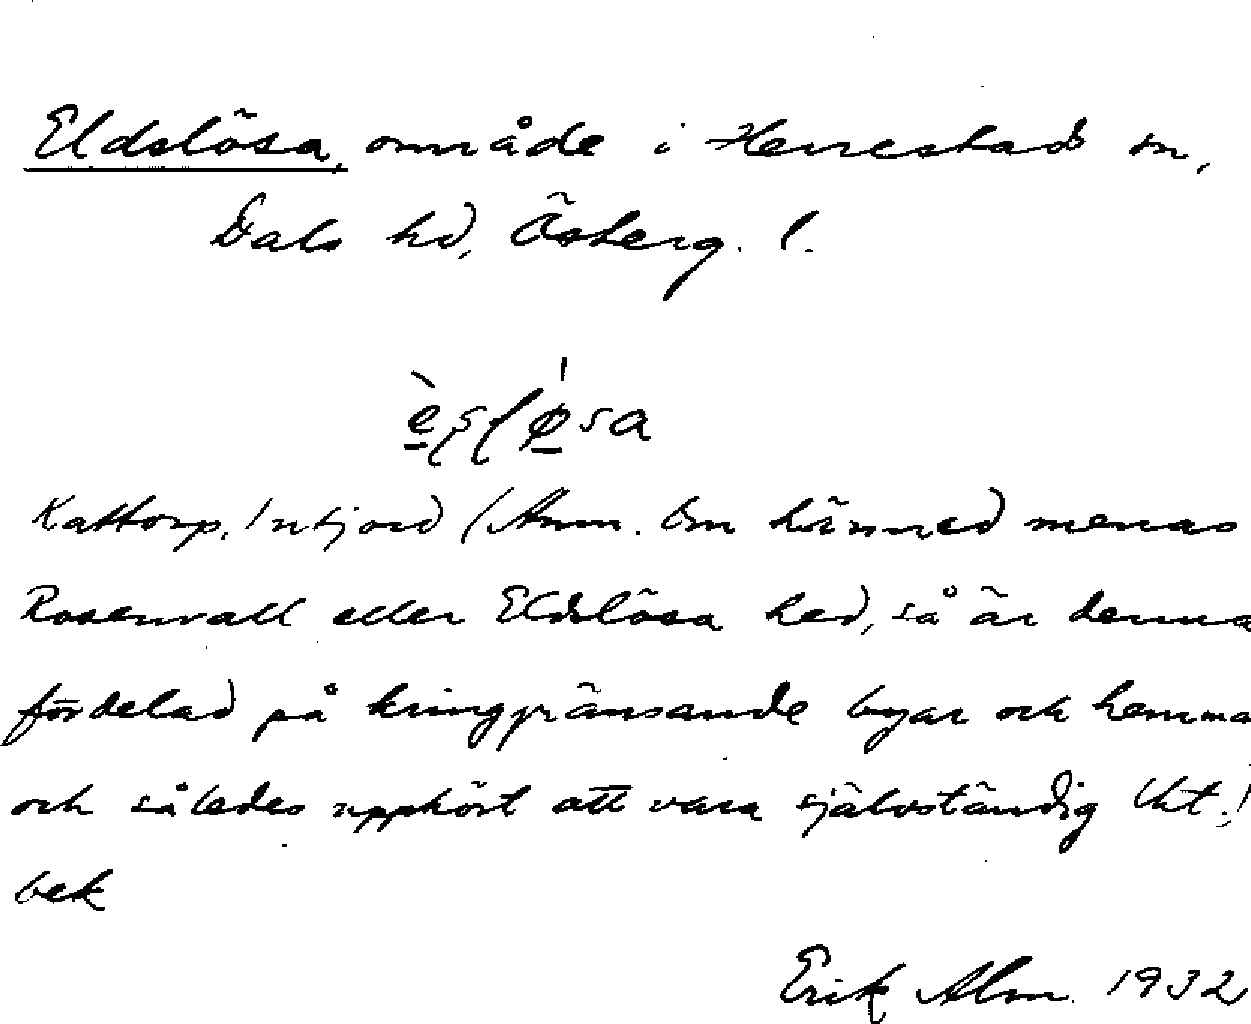 Eldslösa, område i Herrestad sn,
Dals hd, Österg. l.
Kattorp, Intjord (Anm. Om härmed menas
Rosenvall eller Eldslösa hed, så är denna
fördelad på kringgränsande byar och hemma
och således upphört att vara självständig Utt.!
bek
Erik Alm. 1932